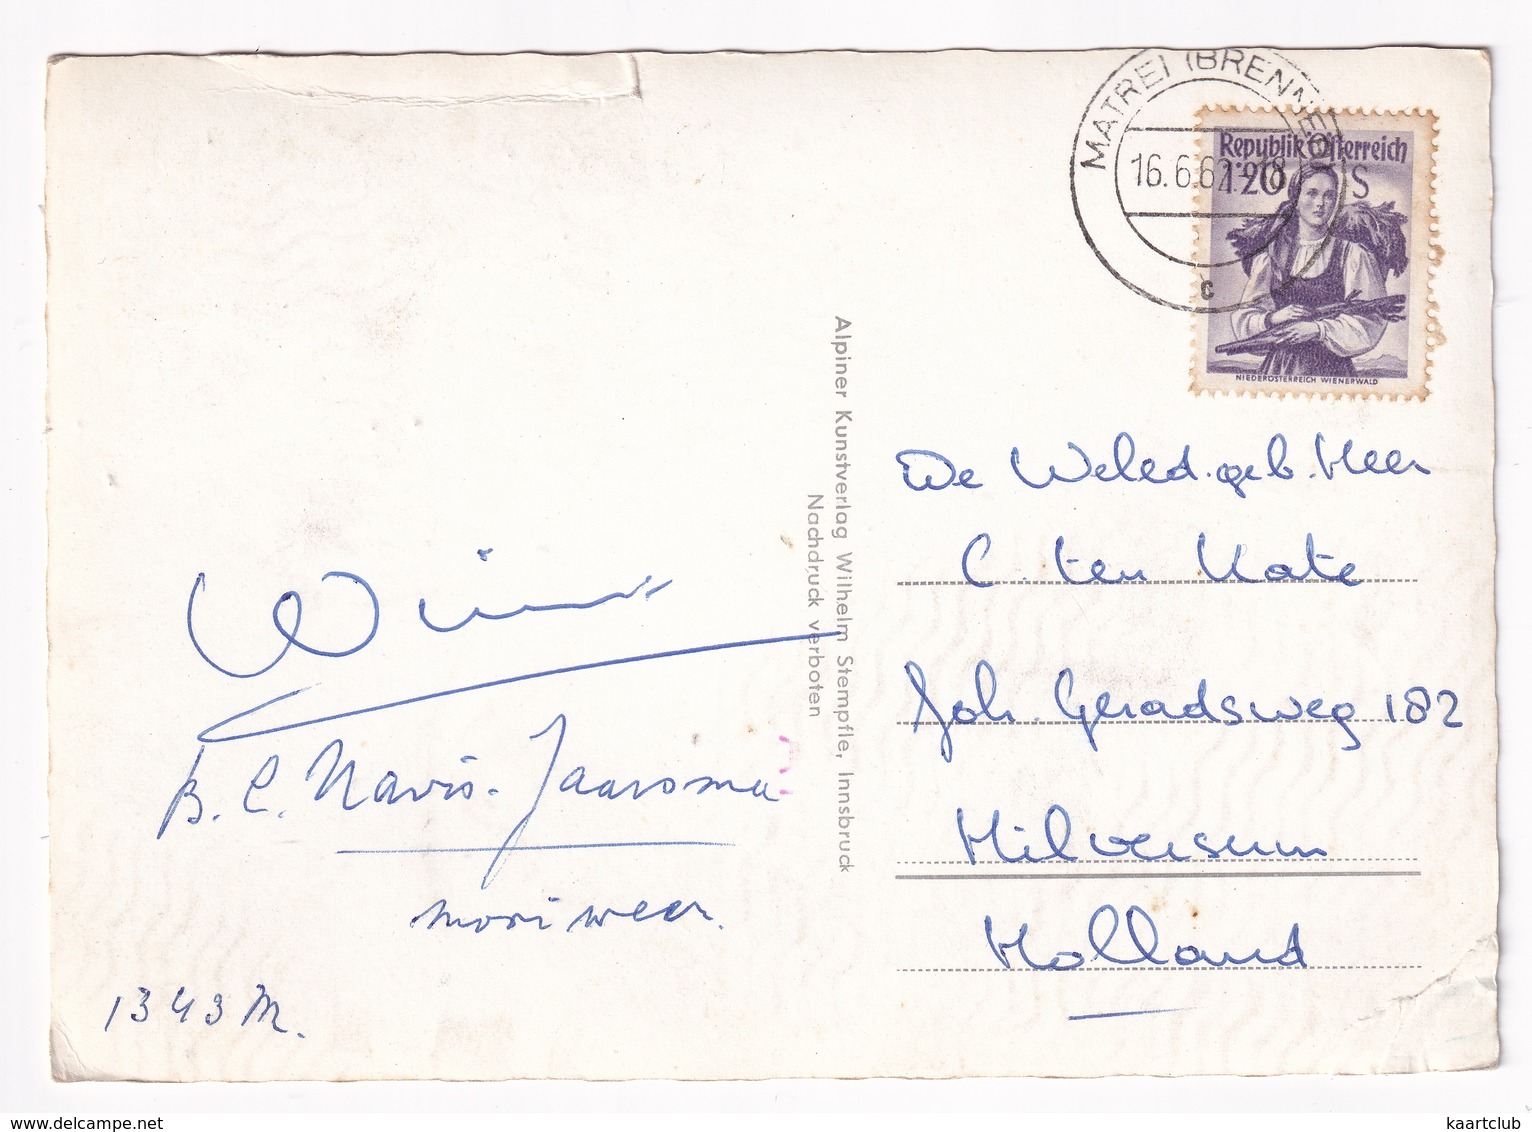 MATREI (BRENNER)
16.6.62.-18
c
Republik Österreich
1·20 S
NIEDERÖSTERREICH WIENERWALD
Alpiner Kunstverlag Wilhelm Stempfle, Innsbruck
Nachdruck verboten
De Weled.geb. Heer
C. ten Kate
Joh. Geradsweg 182
Hilversum
Holland
Wim
B. C. Navis-Jaarsma
mooi weer.
1343 M.
www.delcampe.net
kaartclub